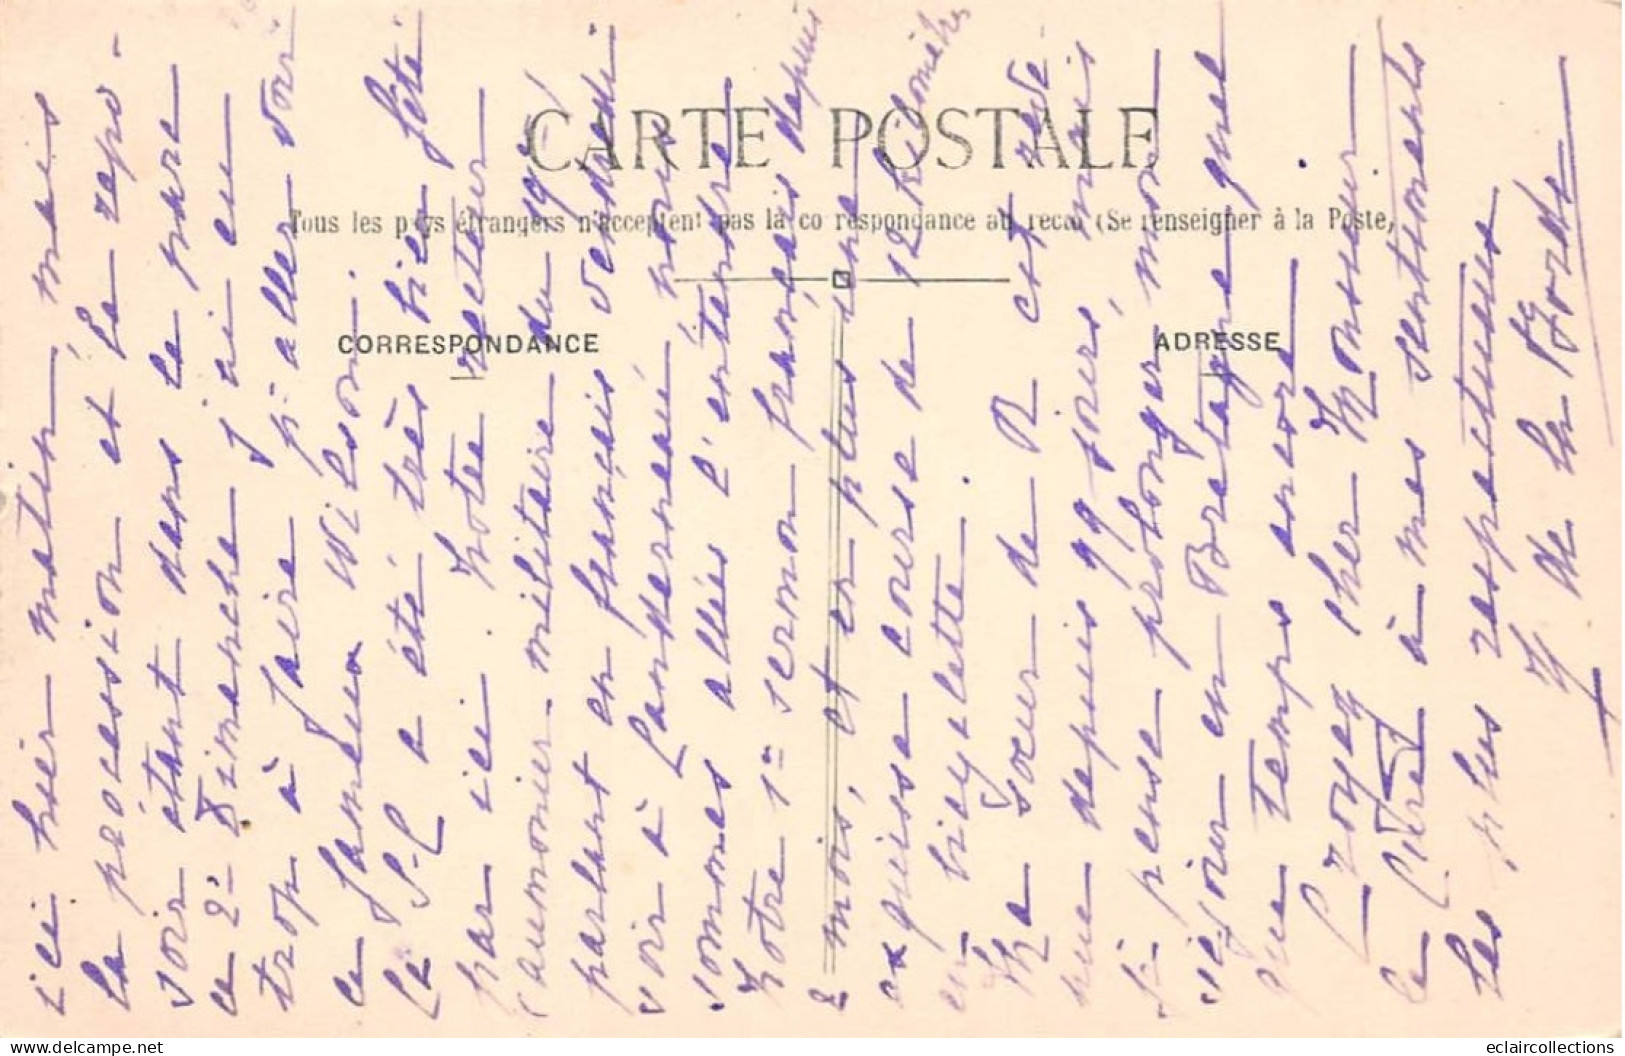 CARTE POSTALE
Tous les pays étrangers n'acceptent pas la correspondance au recto (Se renseigner à la Poste,
CORRESPONDANCE
ADRESSE
ici hier matin, mais
la procession et la repo-
soir étant dans le parc
ce 2e Dimanche j'ai eu
trop à faire p. aller voir
ce fameux Wilson.
Le S-C a été très bien fêté
par ici. Notre recteur
(aumônier militaire du 19e)
parlant en français vendredi
soir à Landerneau, nous
sommes allés l'entendre
Notre 1er sermon français depuis
2 mois, et en plus une
exquise course de 12 kilomètres
en bicyclette.
Ma sœur de R est
vue depuis 99 jours, mais
si pense prolonger mon
séjour en Bretagne que
que temps encore.
Croyez cher Monsieur
le Curé à mes sentiments
les plus respectueux
Y de la
delcampe.net
eclaircollections